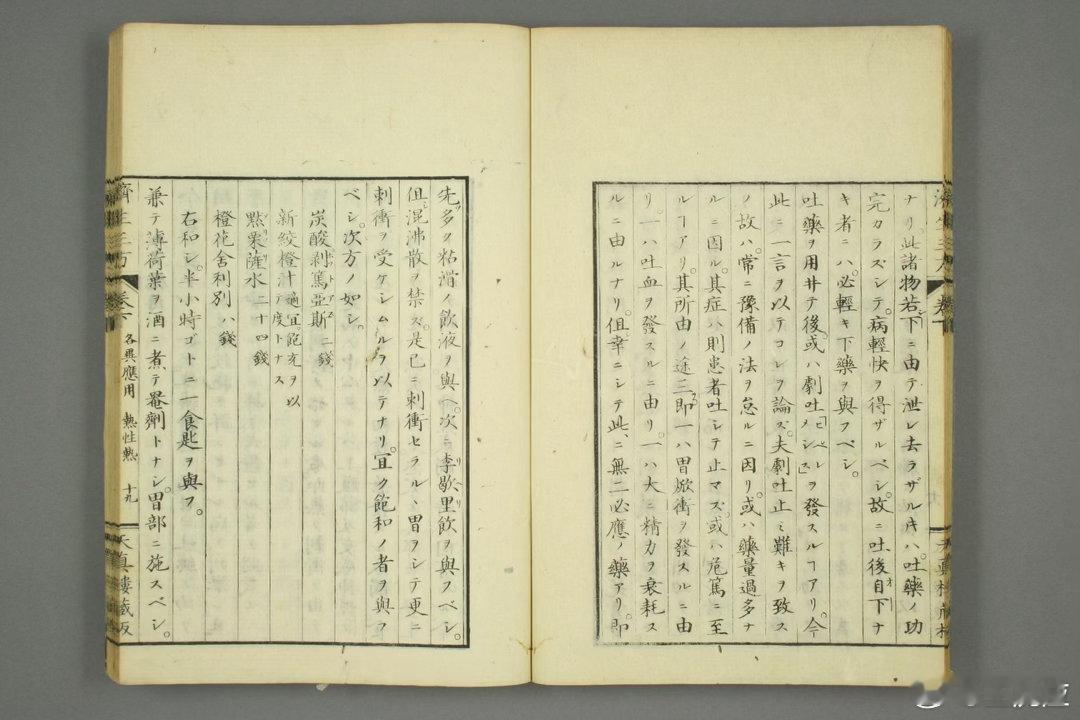 ナリ。此諸物若シ下ニ由テ泄レ去ラザルキハ。吐藥ノ功
完カラズシテ。病輕快ヲ得ザルベシ。故ニ吐後自下ナ
キ者ニハ。必輕キ下藥ヲ與フベシ。
吐藥ヲ用井テ後。或ハ劇吐「ヒベルメンシス」ヲ發スルヿアリ。今
此ニ一言ヲ以テコレヲ論ズ。夫劇吐止ミ難キヲ致ス
ノ故ハ。常ニ豫備ノ法ヲ怠ルニ因リ。或ハ藥量過多ナ
ルニ因ル。其症ハ則患者吐シテ止マズ。或ハ危篤ニ至
ルヿアリ。其所由ノ途三。即一ハ胃焮衝ヲ發スルニ由
リ。一ハ吐血ヲ發スルニ由リ。一ハ大ニ精力ヲ衰耗ス
ルニ由ルナリ。但幸ニシテ此ニ無二必應ノ藥アリ。即
先多ク粘滑ノ飲液ヲ與ヘ。次ニ李歇里飲ヲ與フベシ。
但混沸散ヲ禁ズ。是已ニ刺衝セラルヽ胃ヲシテ更ニ
刺衝ヲ受ケシムルヲ以テナリ。宜ク飽和ノ者ヲ與フ
ベシ。次方ノ如シ。
炭酸剥篤亞斯 二錢
新絞橙汁 適宜。飽充ヲ以テ度トナス
默栗薩水 二十四錢
橙花舍利別 八錢
右和シ。半小時ゴトニ一食匙ヲ與フ。
兼テ薄荷葉ヲ酒ニ煮テ罨劑トナシ。胃部ニ施スベシ。
濟生三方 卷下 各與應用 熱性熱 十九 天真樓藏板